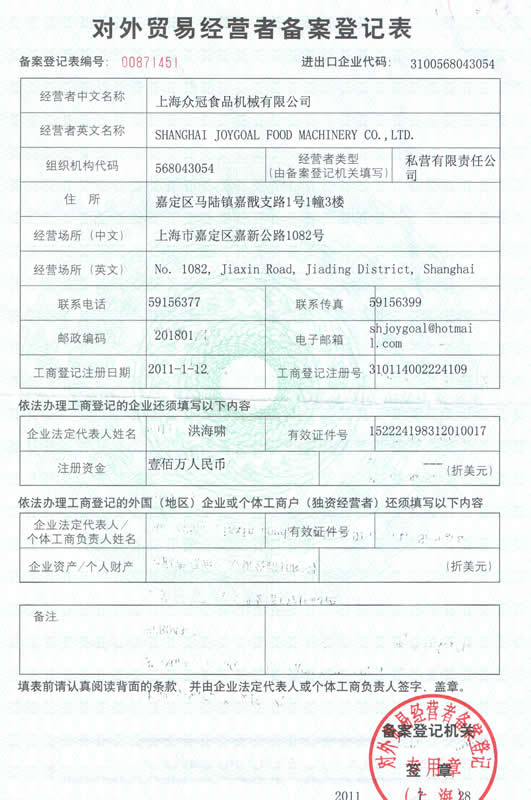 对外贸易经营者备案登记表
备案登记表编号: 00871451 进出口企业代码: 3100568043054
经营者中文名称 上海众冠食品机械有限公司
经营者英文名称 SHANGHAI JOYGOAL FOOD MACHINERY CO.,LTD.
组织机构代码 568043054 经营者类型 (由备案登记机关填写) 私营有限责任公
司
住 所 嘉定区马陆镇嘉戬支路1号1幢3楼
经营场所(中文) 上海市嘉定区嘉新公路1082号
经营场所(英文) No. 1082, Jiaxin Road, Jiading District, Shanghai
联系电话 59156377 联系传真 59156399
邮政编码 201801 电子邮箱 shjoygoal@hotmai
l.com
工商登记注册日期 2011-1-12 工商登记注册号 310114002224109
依法办理工商登记的企业还须填写以下内容
企业法定代表人姓名 洪海啸 有效证件号 152224198312010017
注册资金 壹佰万人民币 (折美元)
依法办理工商登记的外国(地区)企业或个体工商户(独资经营者)还须填写以下内容
企业法定代表人/
个体工商负责人姓名 有效证件号
企业资产/个人财产 (折美元)
备注
填表前请认真阅读背面的条款、并由企业法定代表人或个体工商负责人签字、盖章。
对外贸易经营者备案登记
备案登记机关
专用章
签 章
(上海)
2011 28